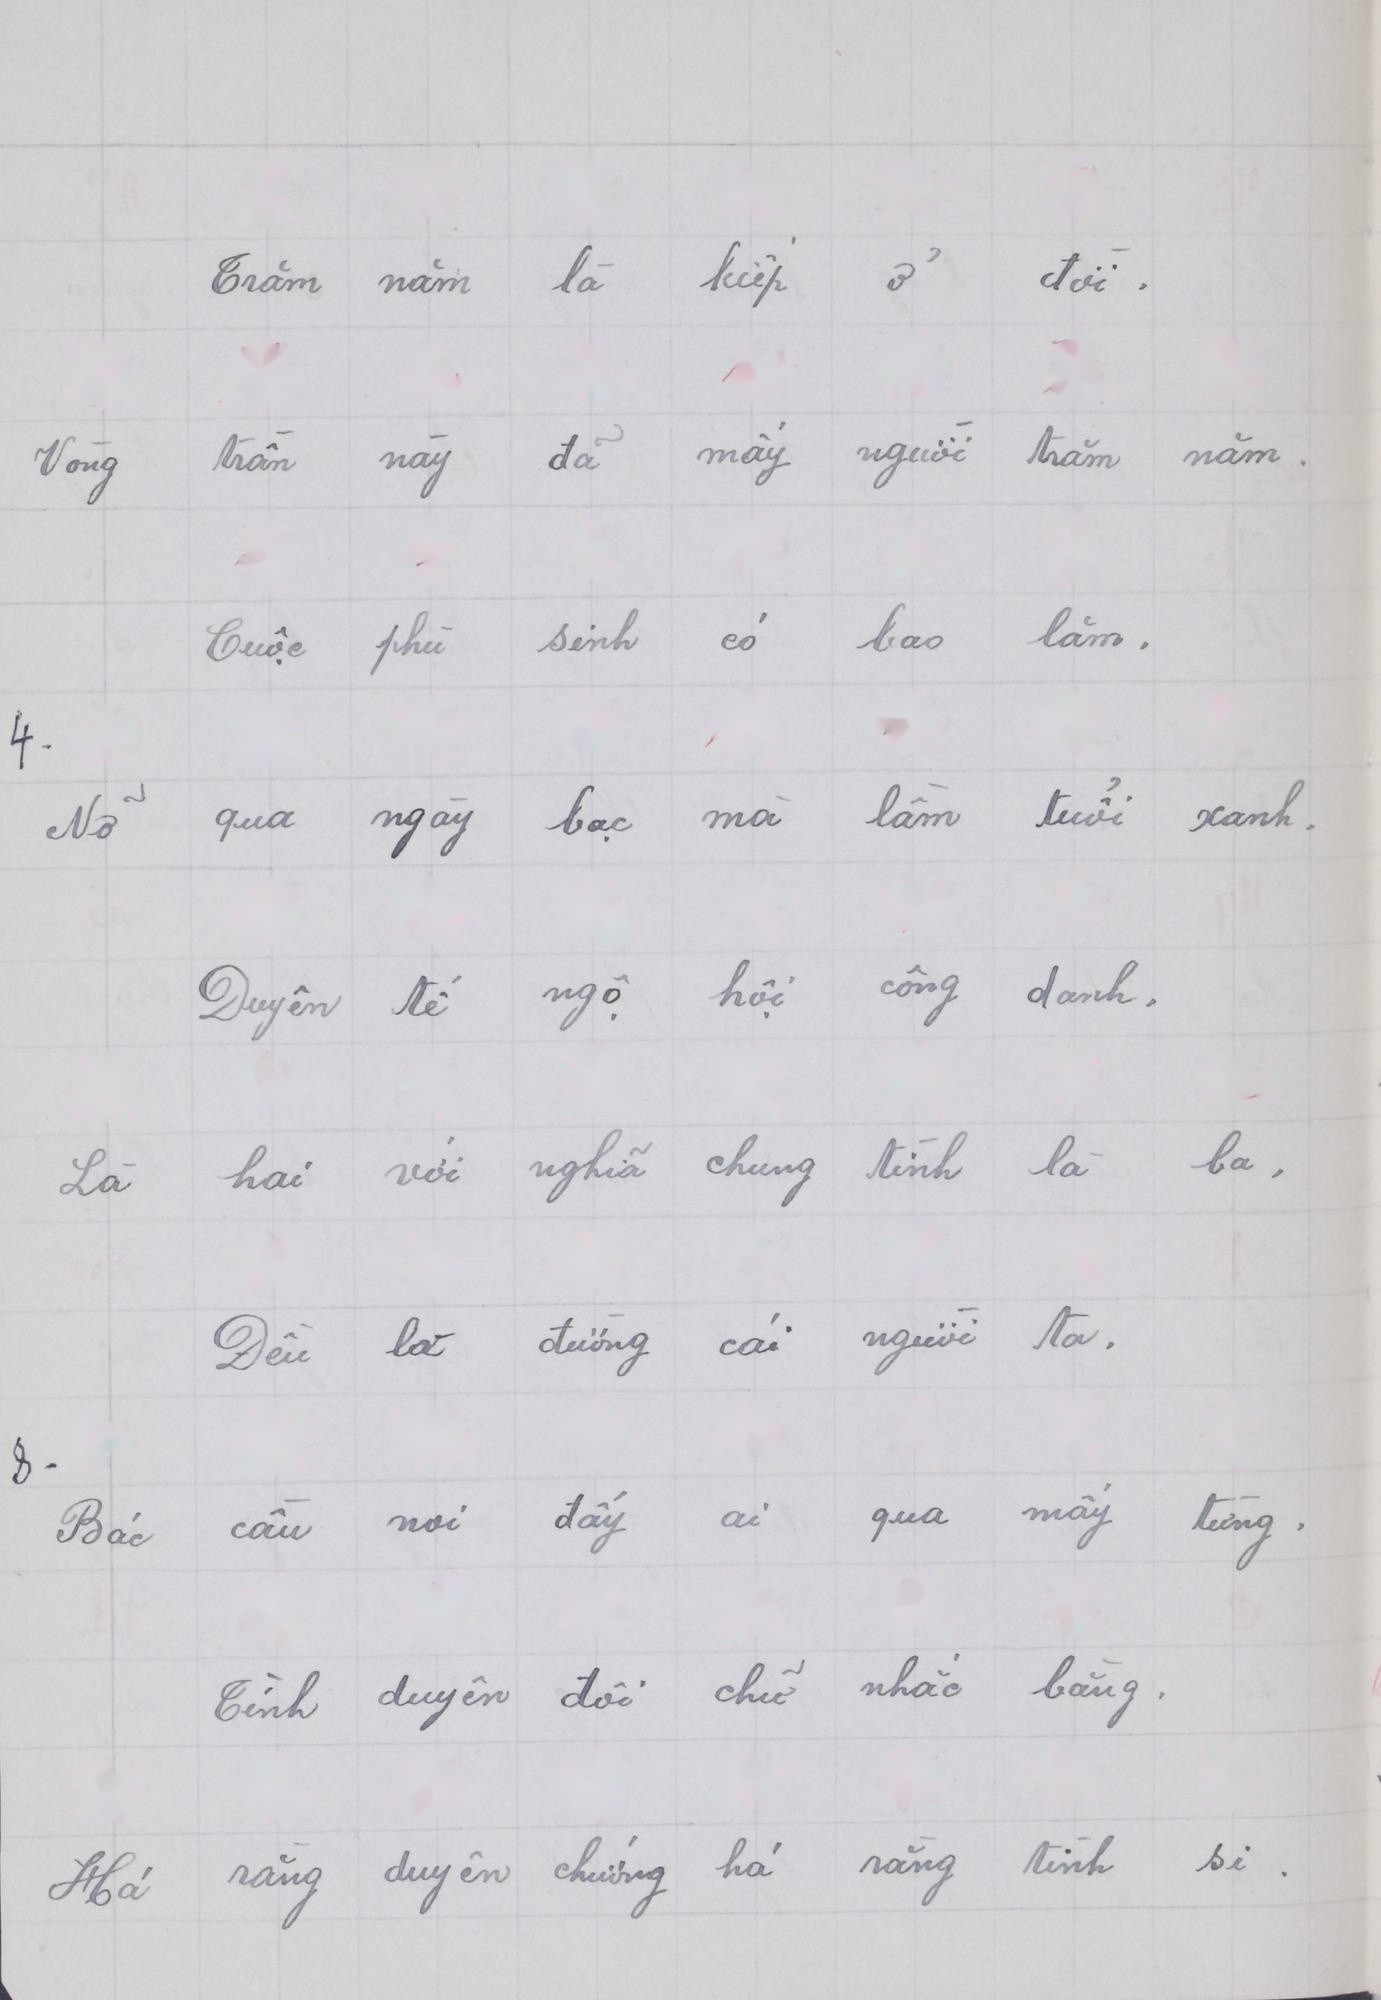 Trăm năm là kiếp ở đời.
Vòng trần này đã mấy người trăm năm.
Cuộc phù sinh có bao lăm.
4.
Nỡ qua ngày bạc mà lầm tuổi xanh.
Duyên tế ngộ hội công danh.
Là hai với nghiã chung tình là ba.
Đều là đường cái người ta.
8.
Bác cầu noi đấy ai qua mấy từng.
Tình duyên đôi chữ nhắc bằng.
Há rằng duyên chướng há rằng tình si.